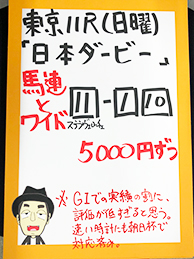 東京11R(日曜)
「日本ダービー」
馬連
と
ワイド
11-10
5000円ずつ
※GIでの実績の割に、
評価が低すぎると思う。
速い時計にも朝日杯で
対応済み。